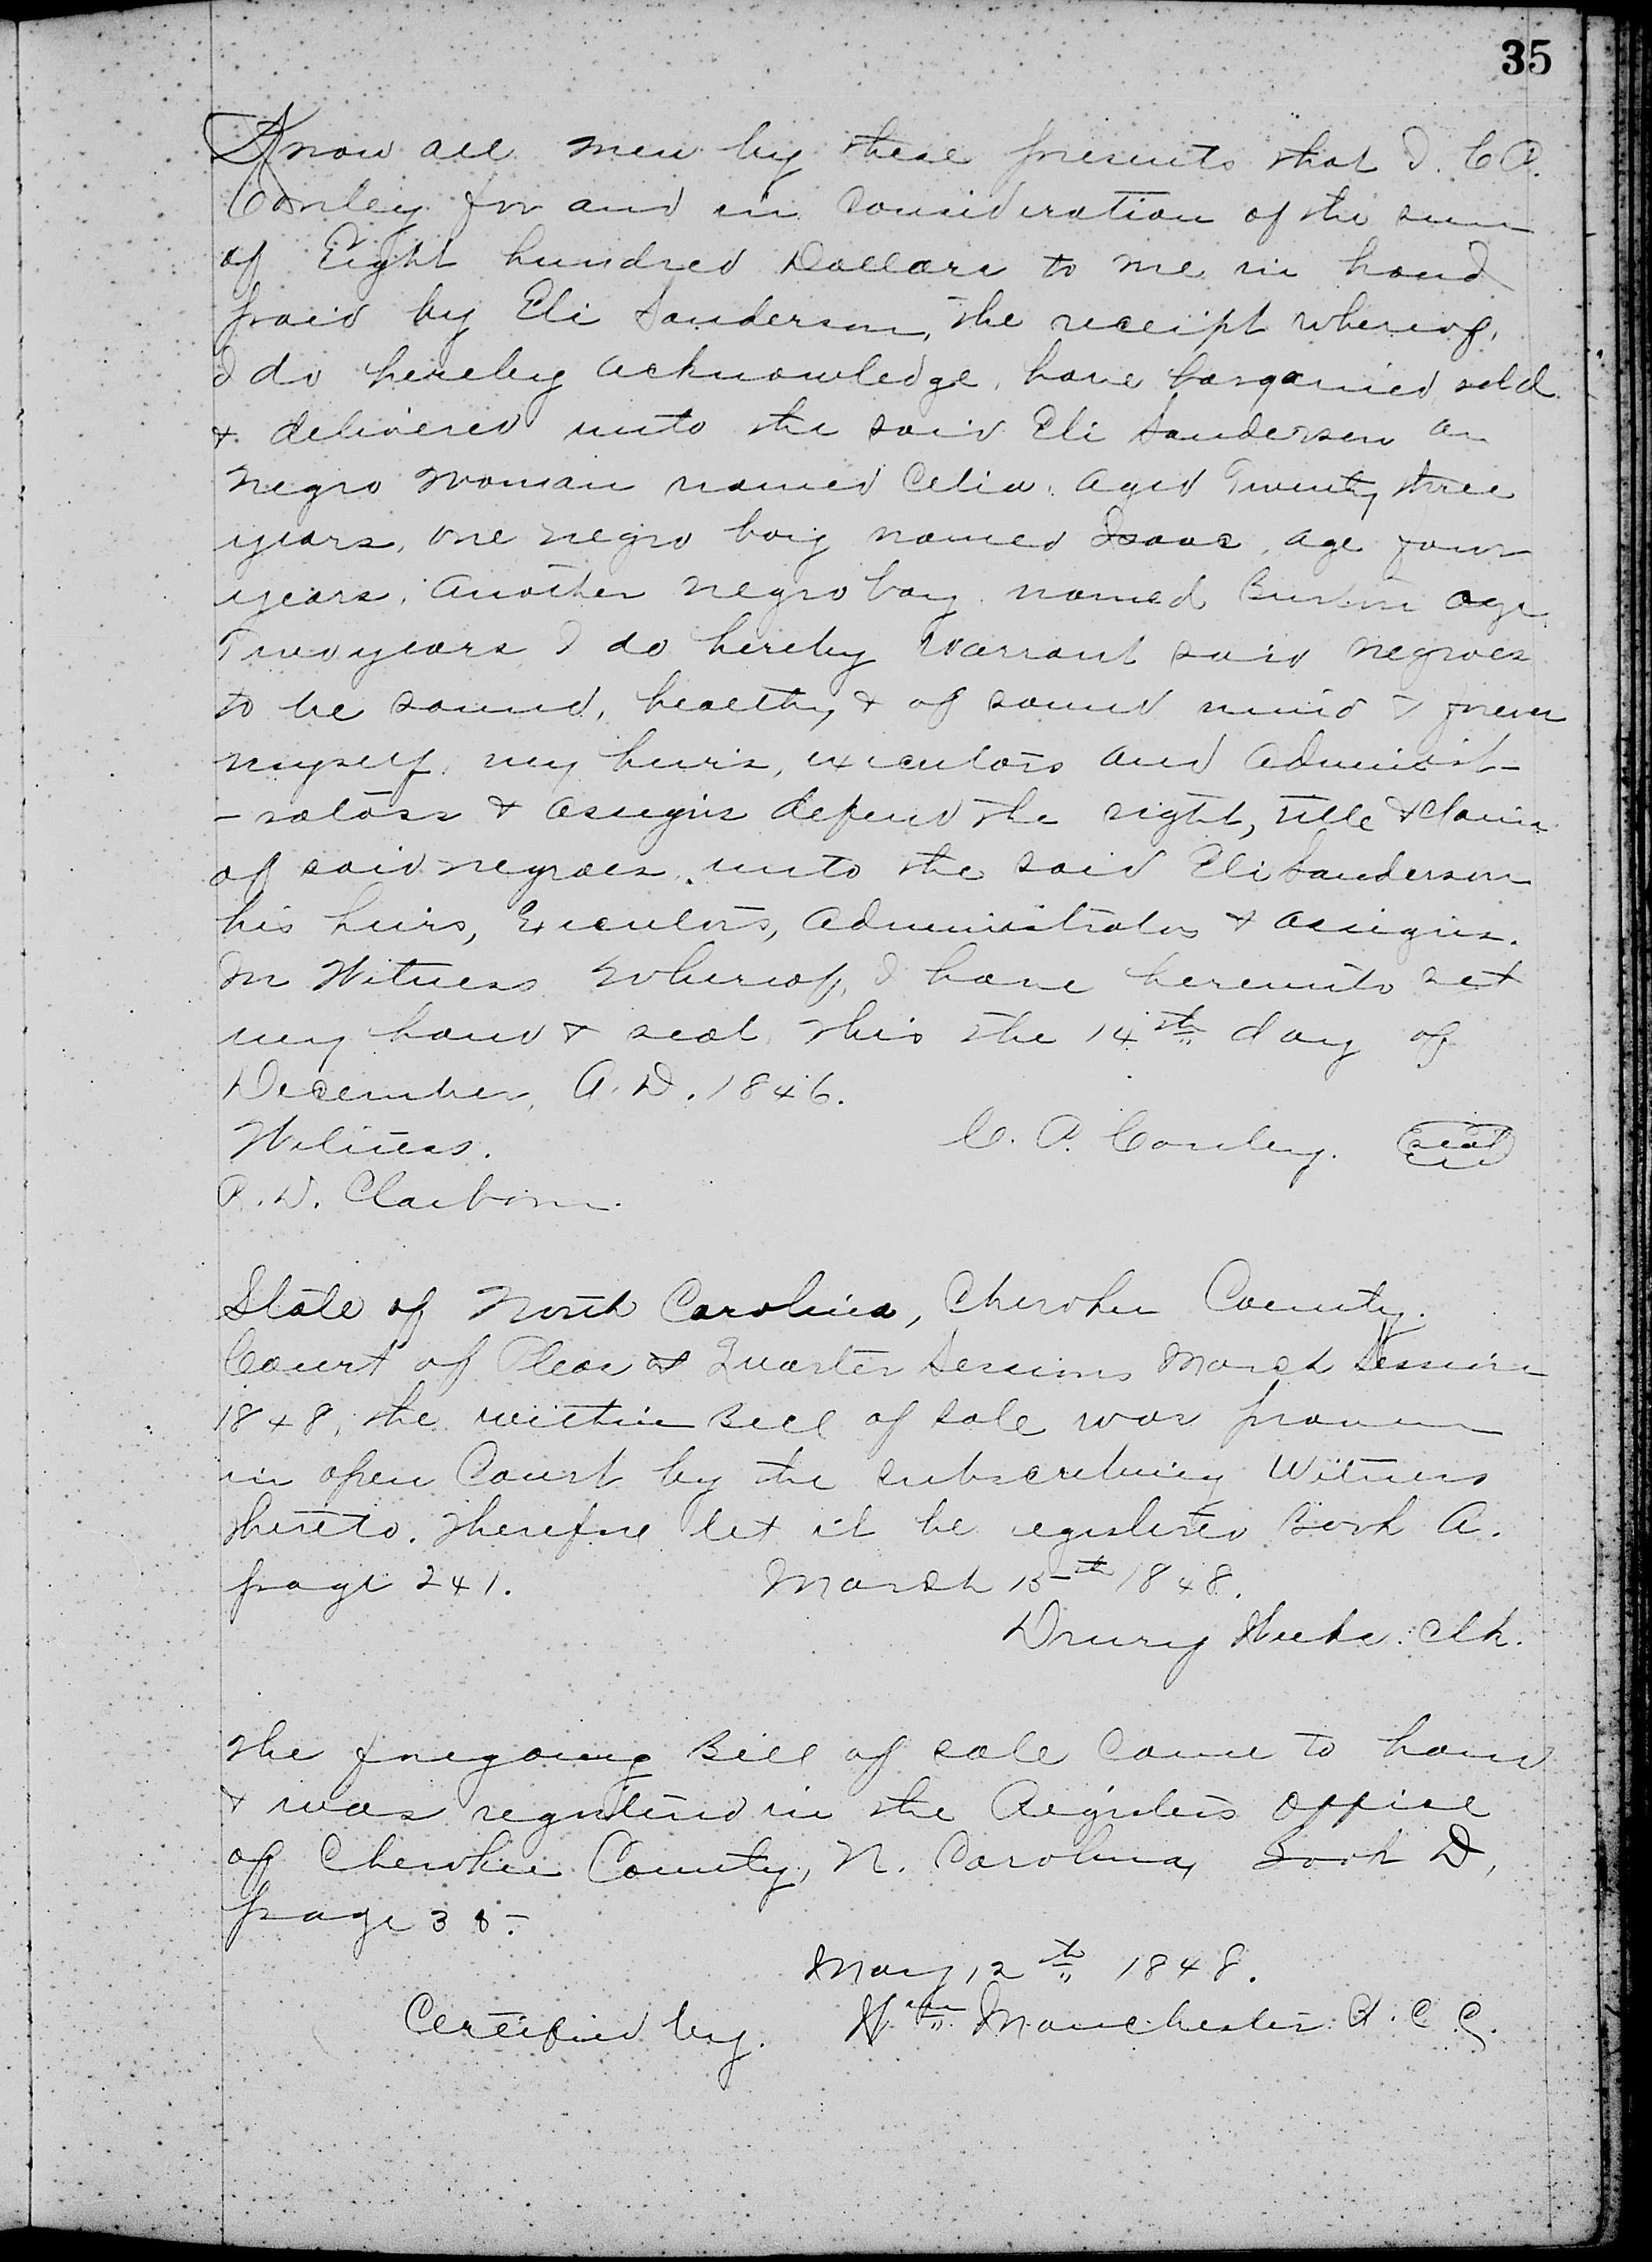 35
Know all men by these presents that I. C. P.
Conley for and in consideration of the sum
of Eight hundred Dollars to me in hand
paid by Eli Sanderson, the receipt whereof,
I do hereby acknowledge, have bargained sold
& delivered unto the said Eli Sanderson an
Negro Woman named Celia. aged Twenty three
years, one negro boy named Isaac, age four
years, another negro boy named Burton age
Two years I do hereby warrant said negroes
to be sound, healthy & of sound mind & forever
myself, my heirs, executors and administ-
-rators & assigns defend the right, title & claim
of said negroes. unto the said Eli Sanderson
his heirs, Executors, administrators & assigns.
In Witness Whereof, I have hereunto set
my hand & seal this the 14th day of
December, A.D. 1846.
Witness. C. P. Conley. Seal
P. D. Claiborn.
State of North Carolina, Cherokee County.
Court of Pleas & Quarter Sessions March Session
1848, the within Bill of Sale was proven
in open Court by the subscribing Witness
thereto. Therefore let it be registered Book A.
page 241. March 15th 1848.
Drury Weeks. Clk.
The foregoing Bill of sale came to hand
& was registered in the Registers office
of Cherokee County, N. Carolina, Book D,
page 35.
May 12th 1848.
Certified by. Wm Manchester. R. C. C.